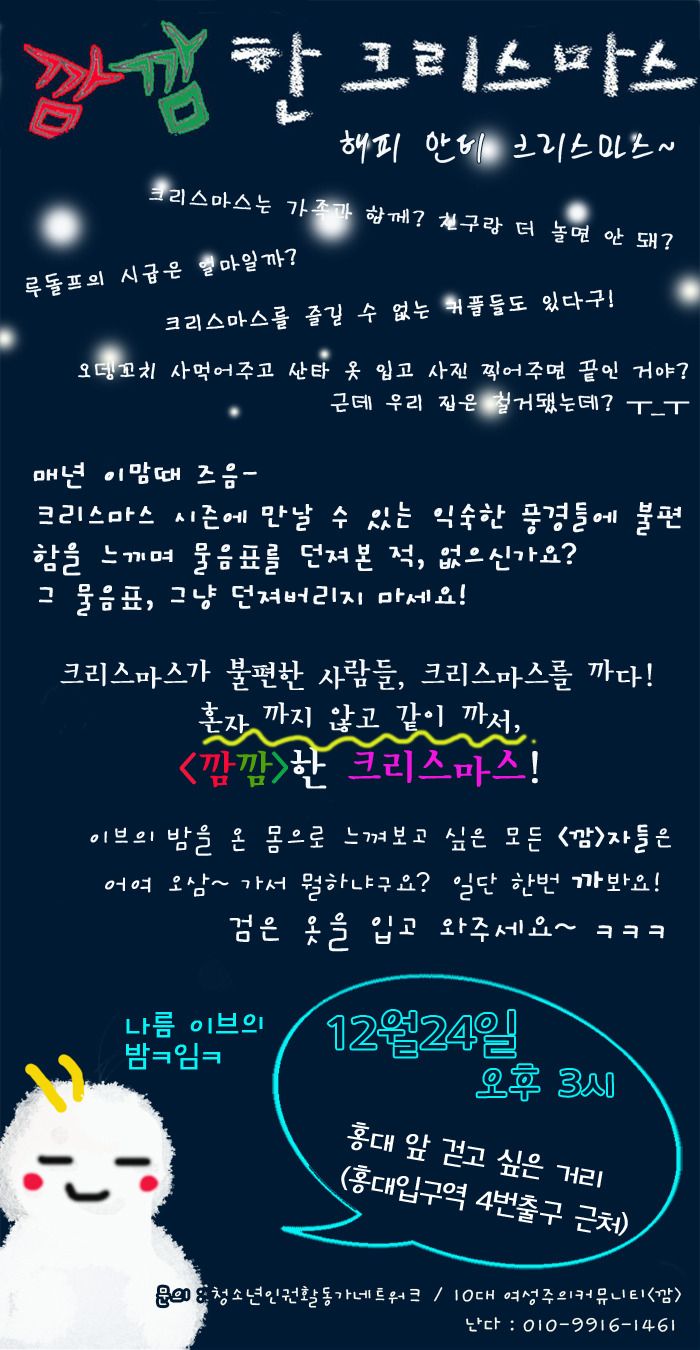 깜깜한 크리스마스
해피 안티 크리스마스~
크리스마스는 가족과 함께? 친구랑 더 놀면 안 돼?
루돌프의 시급은 얼마일까?
크리스마스를 즐길 수 없는 커플들도 있다구!
오뎅꼬치 사먹어주고 산타 옷 입고 사진 찍어주면 끝인 거야?
근데 우리 집은 철거됐는데? ㅜ_ㅜ
매년 이맘때 즈음-
크리스마스 시즌에 만날 수 있는 익숙한 풍경들에 불편
함을 느끼며 물음표를 던져본 적, 없으신가요?
그 물음표, 그냥 던져버리지 마세요!
크리스마스가 불편한 사람들, 크리스마스를 까다!
혼자 까지 않고 같이 까서,
<깜깜>한 크리스마스!
이브의 밤을 온 몸으로 느껴보고 싶은 모든 <깜>자들은
어여 오삼~ 가서 뭘하냐구요? 일단 한번 까봐요!
검은 옷을 입고 와주세요~ ㅋㅋㅋ
나름 이브의
밤ㅋ임ㅋ
12월24일
오후 3시
홍대 앞 걷고 싶은 거리
(홍대입구역 4번출구 근처)
문의 : 청소년인권활동가네트워크 / 10대 여성주의커뮤니티<깜>
난다 : 010-9916-1461